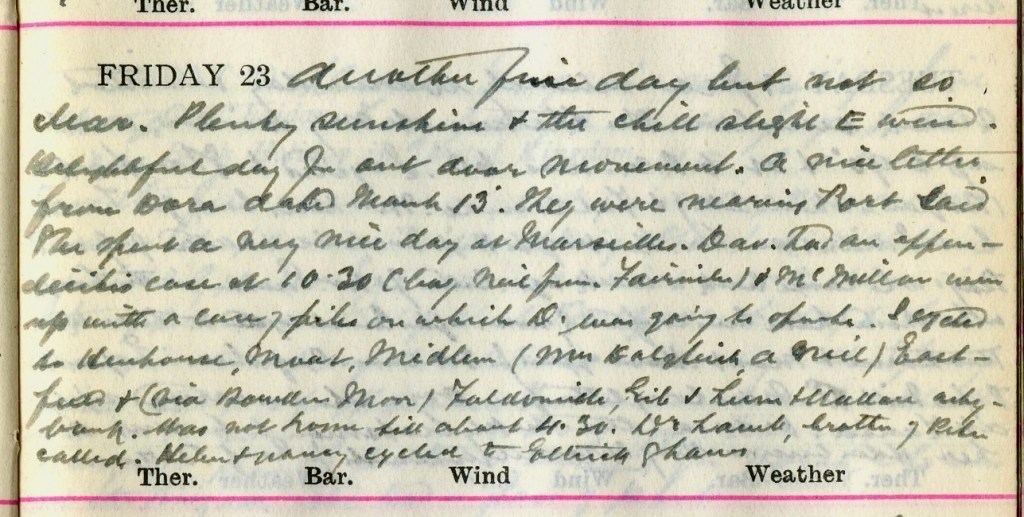 Ther. Bar. Wind Weather
FRIDAY 23 Another fine day but not so
clear. Plenty sunshine & the chill slight E wind.
Delightful day for out door movement. A nice letter
from Dora dated March 13. They were nearing Port Said
The spent a very nice day at Marseilles. Dav. had an appen-
dicitis case at 10.30 (boy Neil from Fairnilee) & McMillan was
up with a case of piles on which D. was going to operate. I cycled
to Henhouse, Moat, Midlem (Mrs Dalgleish, a Neil) East-
field & (via Bowden Moor) Faldonside, & Wallace
bank. Was not home till about 4.30. Dr Lamb, brother of
called. Helen & Nancy cycled to Ettrick Shaws.
Ther. Bar. Wind Weather